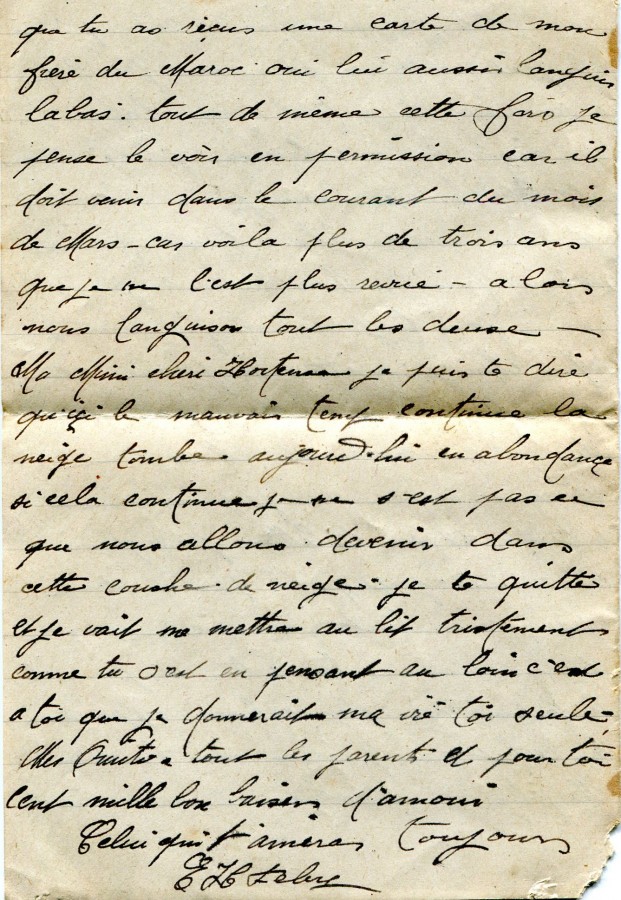 que tu as reçus une carte de mon
frère du Maroc oui lui aussi languis
labas. tout de même cette fois je
pense le voir en permission car il
doit venir dans le courant du mois
de Mars - car voila plus de trois ans
que je ne l'est plus revue - alors
nous languison tout les deuse -
Ma Mimi cheri Hortense je puis te dire
qu'içi le mauvais temp continue la
neige tombe aujourd'hui en abondance
si cela continue je ne s'est pas ce
que nous allons devenir dans
cette couche de neige. je te quitte
et je vait me mettre au lit tristement
comme tu s'est en pensant au loin c'est
a toi que je donnerait ma vie toi seule,
Mes a tout les parents et pour toi
cent mille bon baisers d'amour
Celui qui t'aimeras toujours
E H